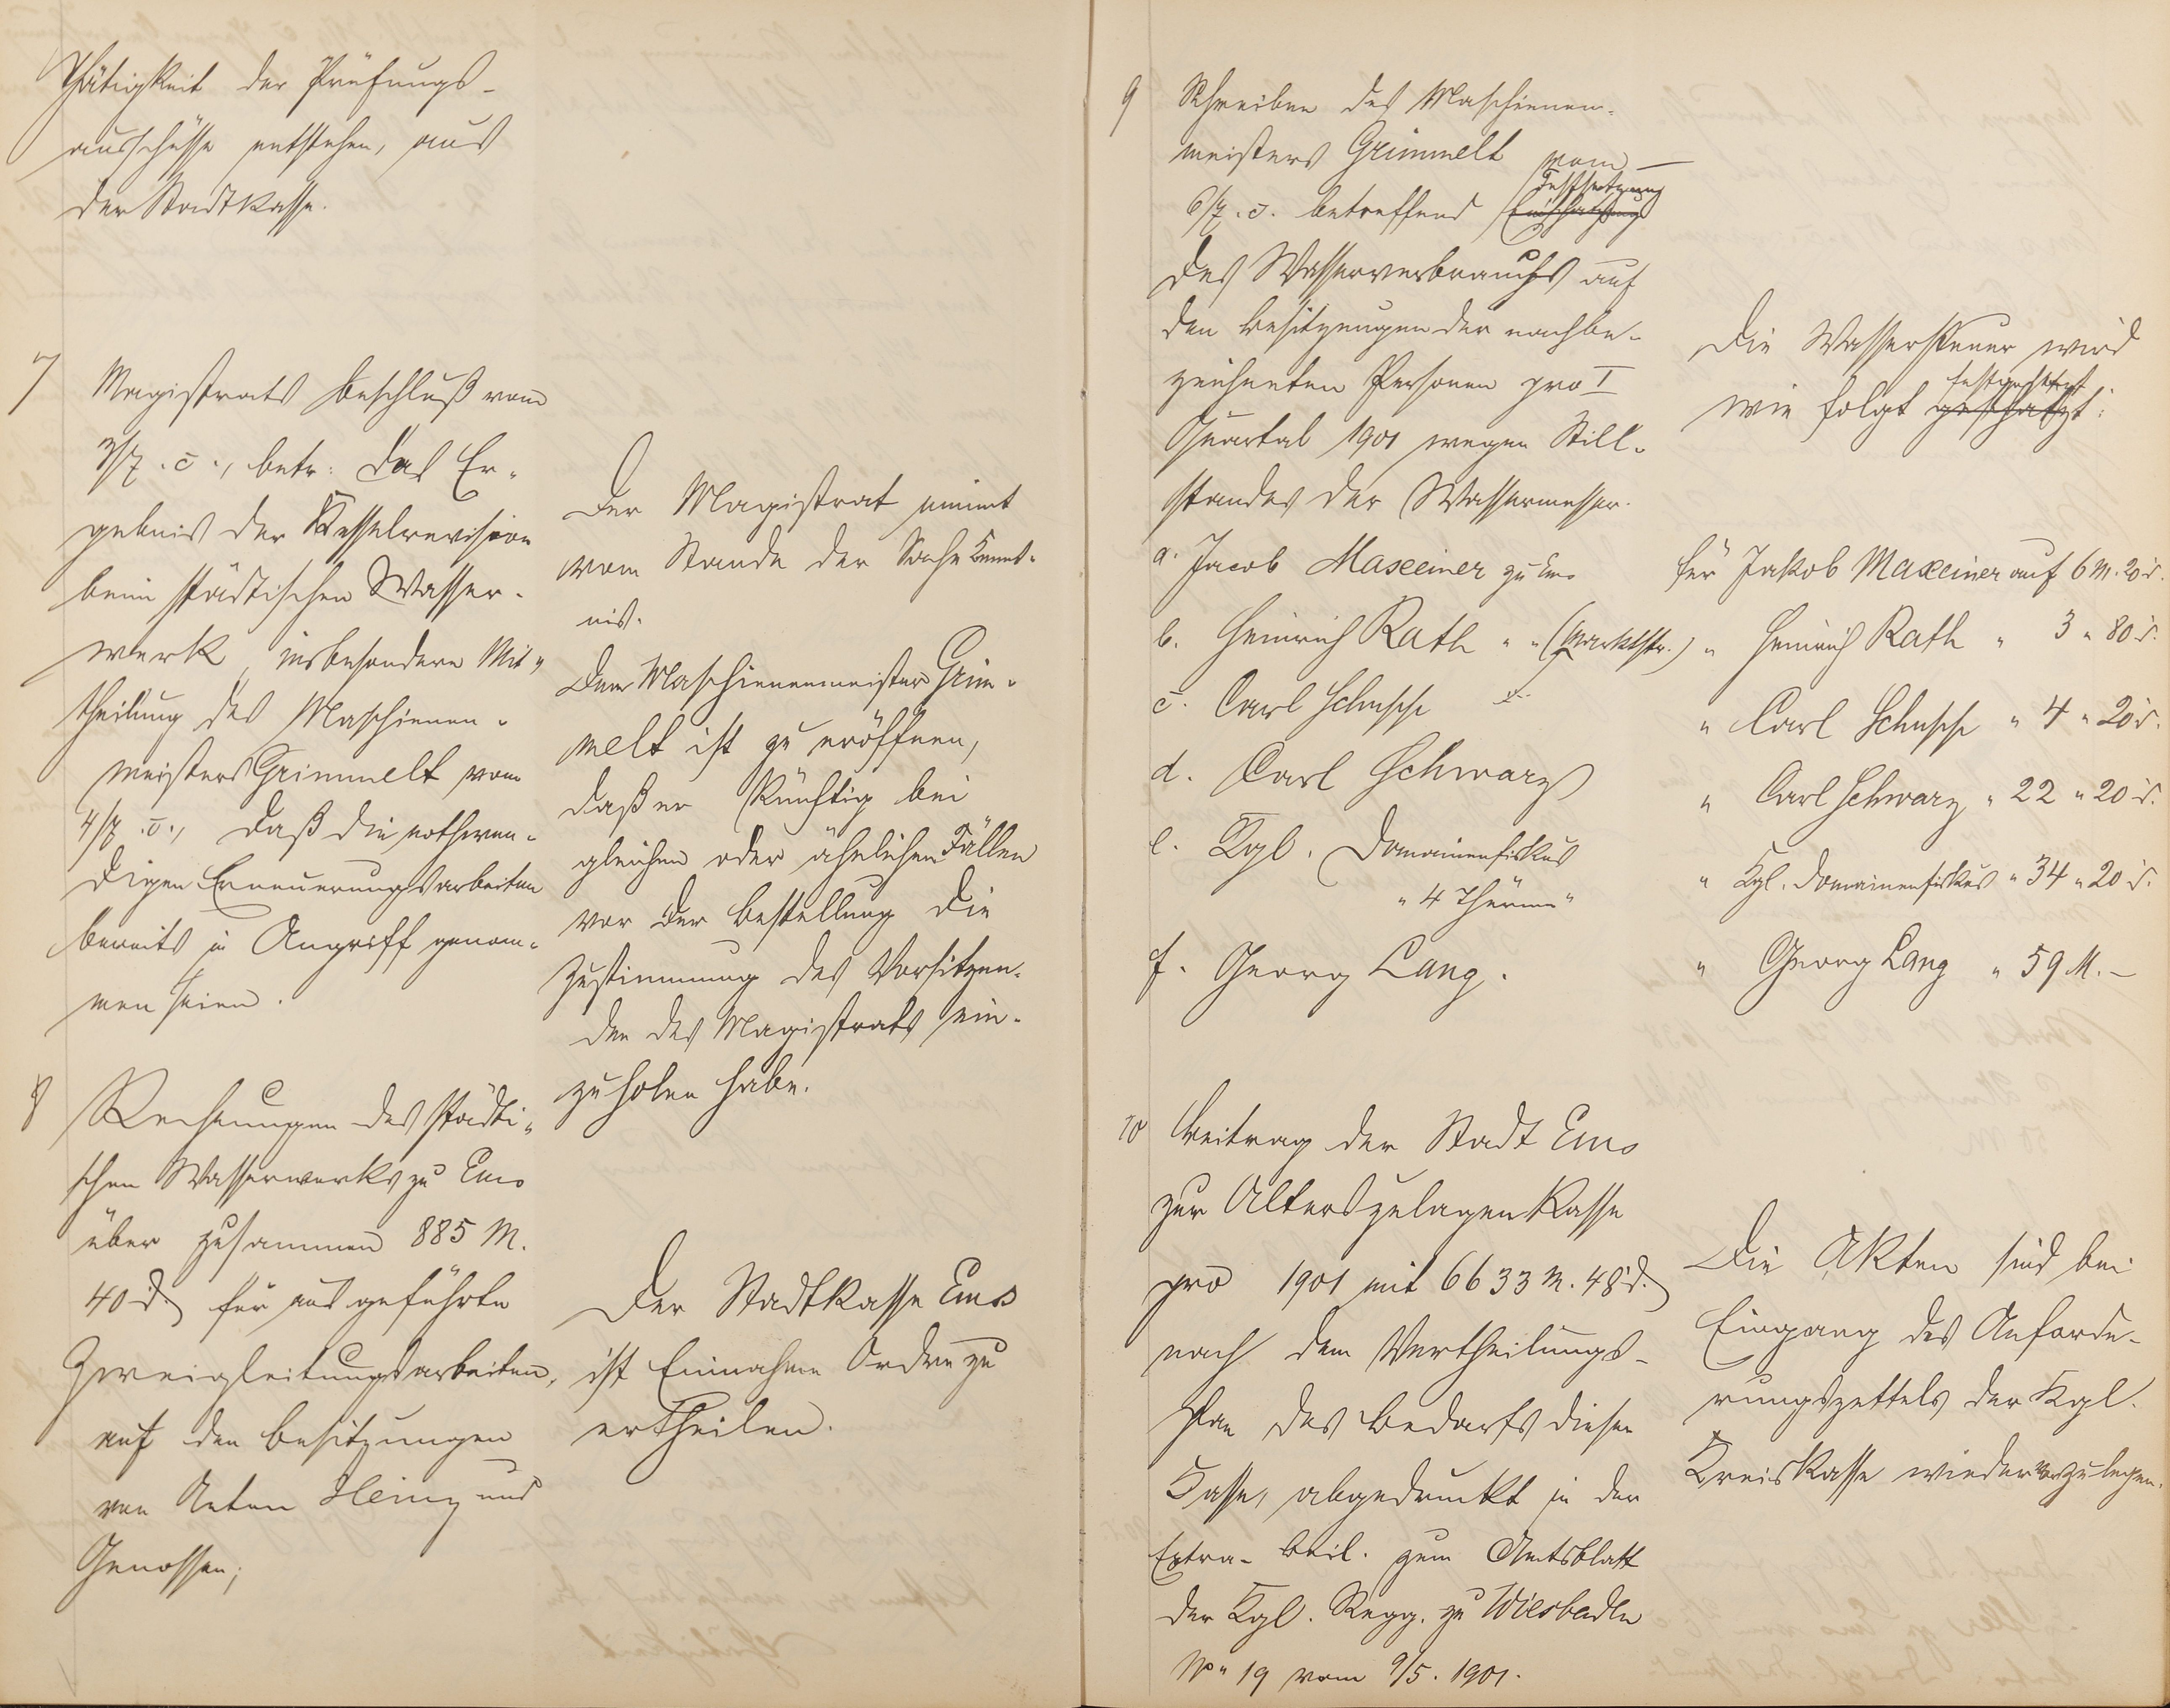 Thätigkeit der Prüfungs-
ausschüsse entstehen, aus
der Stadtkasse.
7 Magistrats Beschluß vom
3/7. c., betr. das Er-
gebnis der Kesselrevision
beim städtischen Wasser-
werk, insbesondere Mit-
theilung des Maschienen-
meisters Grimmelt vom
4/7. c., daß die nothwen-
digen Erneuerungsarbeiten
bereits in Angriff genom-
men seien.
Der Magistrat nimmt
vom Stande der Sache Kennt-
nis.
Dem Maschienenmeister Grim-
melt ist zu eröffnen,
daß er künftig bei
gleichen oder ähnlichen Fällen
vor der Bestellung die
Zustimmung des Vorsitzen-
den des Magistrats ein-
zuholen habe.
8 Rechnungen des städti-
schen Wasserwerks zu Ems
über zusammen 885 M.
40 d. für ausgeführte
Zweigleitungsarbeiten,
auf den Besitzungen
von Anton Heinz und
Genossen;
Der Stadtkasse Ems
ist Einnahme Ordre zu
ertheilen.
9 Schreiben des Maschienen-
meisters Grimmelt vom
6/7. c. betreffend Festsetzung
des Wasserverbrauchs auf
den Besitzungen der nachbe-
zeichneten Personen pro I
Quartal 1901 wegen Still-
standes der Wassermesser.
a. Jacob Maxeiner zu Ems
b. Heinrich Rath " " (Marktstr.)
c. Carl
d. Carl Schwarz
e. Kgl. Domainenfiskus
" 4 Thürme "
f. Georg Lang.
Die Wassersteuer wird
wie folgt festgesetzt geschätzt:
für Jakob Maxeiner auf 6 M. 20 d.
" Heinrich Rath " 3 " 80 d.
" Carl " 4 " 20 d.
" Carl Schwarz " 22 " 20 d.
" Kgl. Domainenfiskus " 34 " 20 d.
" Georg Lang " 59 M. –
10 Beitrag der Stadt Ems
zur Alterszulagen Kasse
pro 1901 mit 6633 M. 48 d.
nach dem Vertheilungs-
plan des Bedarfs dieser
Kasse, abgedruckt in der
Extra-Beil. zum Amtsblatt
der Kgl. Regg. zu Wiesbaden
No 19 vom 9/5. 1901.
Die Akten sind bei
Eingang des Anforde-
rungszettels der Kgl.
Kreiskasse wiedervorzulegen.